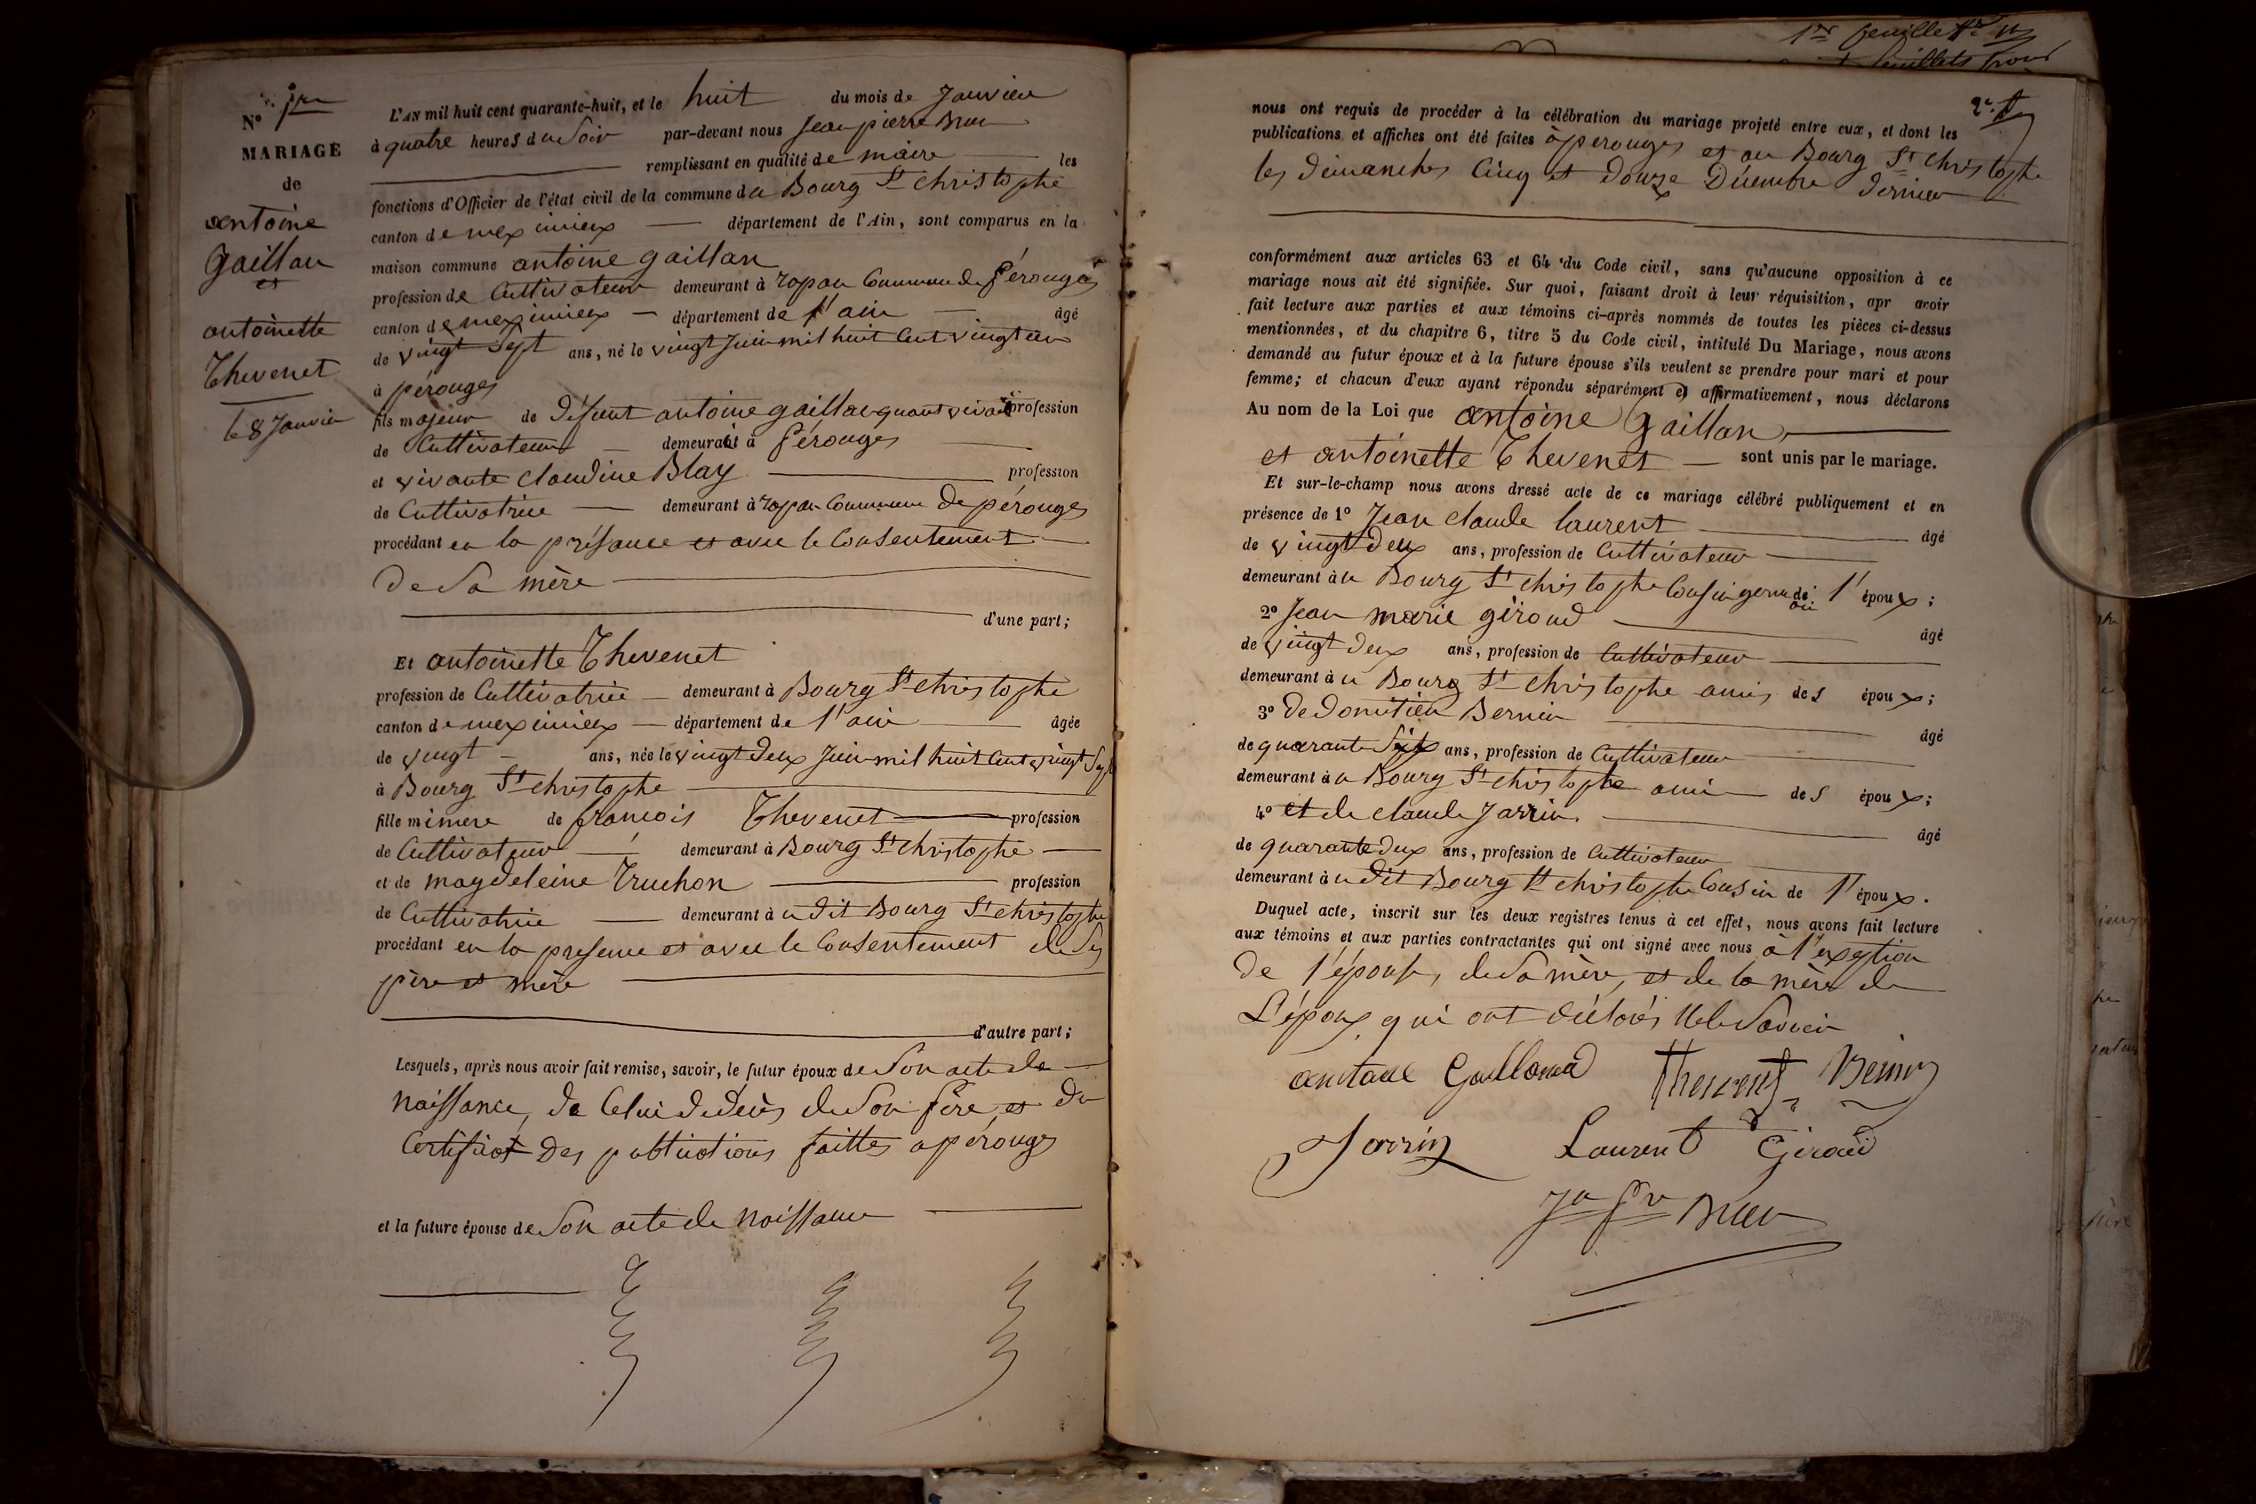 N° 1er
MARIAGE
de
antoine
Gaillan
et
antoinette
Thevenet
le 8 Janvier
L'AN mil huit cent quarante-huit, et le huit du mois de Janvier
à quatre heures du Soir par-devant nous Jean pierre Brun
remplissant en qualité de maire les
fonctions d'Officier de l'état civil de la commune du Bourg St christophe
canton de meximieux département de l'Ain, sont comparus en la
maison commune antoine gaillan
profession de Cultivateur demeurant à rapan Commune de Pérouges
canton de meximieux département de l'ain âgé
de vingt Sept ans, né le vingt Juin mil huit Cent vingt un
à pérouges
fils majeur de Défunt antoine gaillan quant vivait profession
de Cultivateur demeurait à Pérouges
et vivante claudine Blay profession
de Cultivatrice demeurant à rapan Commune De pérouges
procédant en la présance et avec le Consentement
De Sa mère
d'une part;
Et antoinette Thevenet
profession de Cultivatrice demeurant à Bourg St christophe
canton de meximieux département de l'ain âgée
de vingt ans, née le vingt deux Juin mil huit Cent vingt Sept
à Bourg St christophe
fille mineure de françois Thevenet profession
de Cultivateur demeurant à Bourg St christophe
et de magdeleine Truchon profession
de Cultivatrice demeurant à udit Bourg St christophe
procédant en la presence et avec le Consentement de Ses
père et mère
d'autre part;
Lesquels, après nous avoir fait remise, savoir, le futur époux de Son acte de
naissance, de Celui de décès de Son père et du
Certificat Des publications faittes a pérouges
et la future épouse de Son acte de naissance
1er feuillet
feuillets pour
2e
nous ont requis de procéder à la célébration du mariage projeté entre eux, et dont les
publications et affiches ont été faites à perouges et au Bourg St christophe
les dimanches Cinq et Douze Décembre dernier
conformément aux articles 63 et 64 du Code civil, sans qu'aucune opposition à ce
mariage nous ait été signifiée. Sur quoi, faisant droit à leur réquisition, apr avoir
fait lecture aux parties et aux témoins ci-après nommés de toutes les pièces ci-dessus
mentionnées, et du chapitre 6, titre 5 du Code civil, intitulé Du Mariage, nous avons
demandé au futur époux et à la future épouse s'ils veulent se prendre pour mari et pour
femme; et chacun d'eux ayant répondu séparément et affirmativement, nous déclarons
Au nom de la Loi que antoine Gaillan
et antoinette Thevenet sont unis par le mariage.
Et sur-le-champ nous avons dressé acte de ce mariage célébré publiquement et en
présence de 1° Jean claude laurent âgé
de vingt deux ans, profession de Cultivateur
demeurant à u Bourg St christophe Cousin germain de l'époux;
2° Jean marie giroud âgé
de vingt deux ans, profession de Cultivateur
demeurant à u Bourg St christophe amis des époux;
3° De Donutien Bernin âgé
de quarante Sept ans, profession de Cultivateur
demeurant à u Bourg St christophe ami des époux;
4° et de claude Jarrin âgé
de quarante deux ans, profession de Cultivateur
demeurant à udit Bourg St christophe Cousin de l'époux.
Duquel acte, inscrit sur les deux registres tenus à cet effet, nous avons fait lecture
aux témoins et aux parties contractantes qui ont signé avec nous à l'exeption
De l'épouse, de Sa mère, et de la mère de
L'époux qui ont déclarés ne le Savoir
Thevenet Bernin
Jarrin Laurent Giroud
Jn Pre Brun